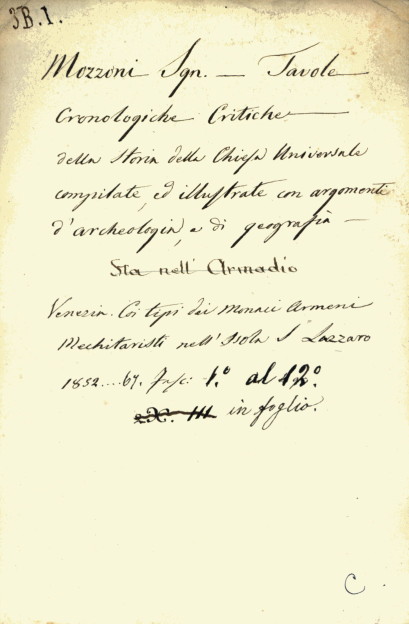 3B.1.
Mozzoni Ign. — Tavole
Cronologiche Critiche —
della Storia della Chiesa Universale
compilate, ed illustrate con argomenti
d'archeologia, e di geografia —
Sta nell' Armadio
Venezia. Coi tipi dei Monaci Armeni
Mechitaristi nell' Isola S Lazzaro
1852....67. Fasc: 1.° al 12.°
in foglio.
C